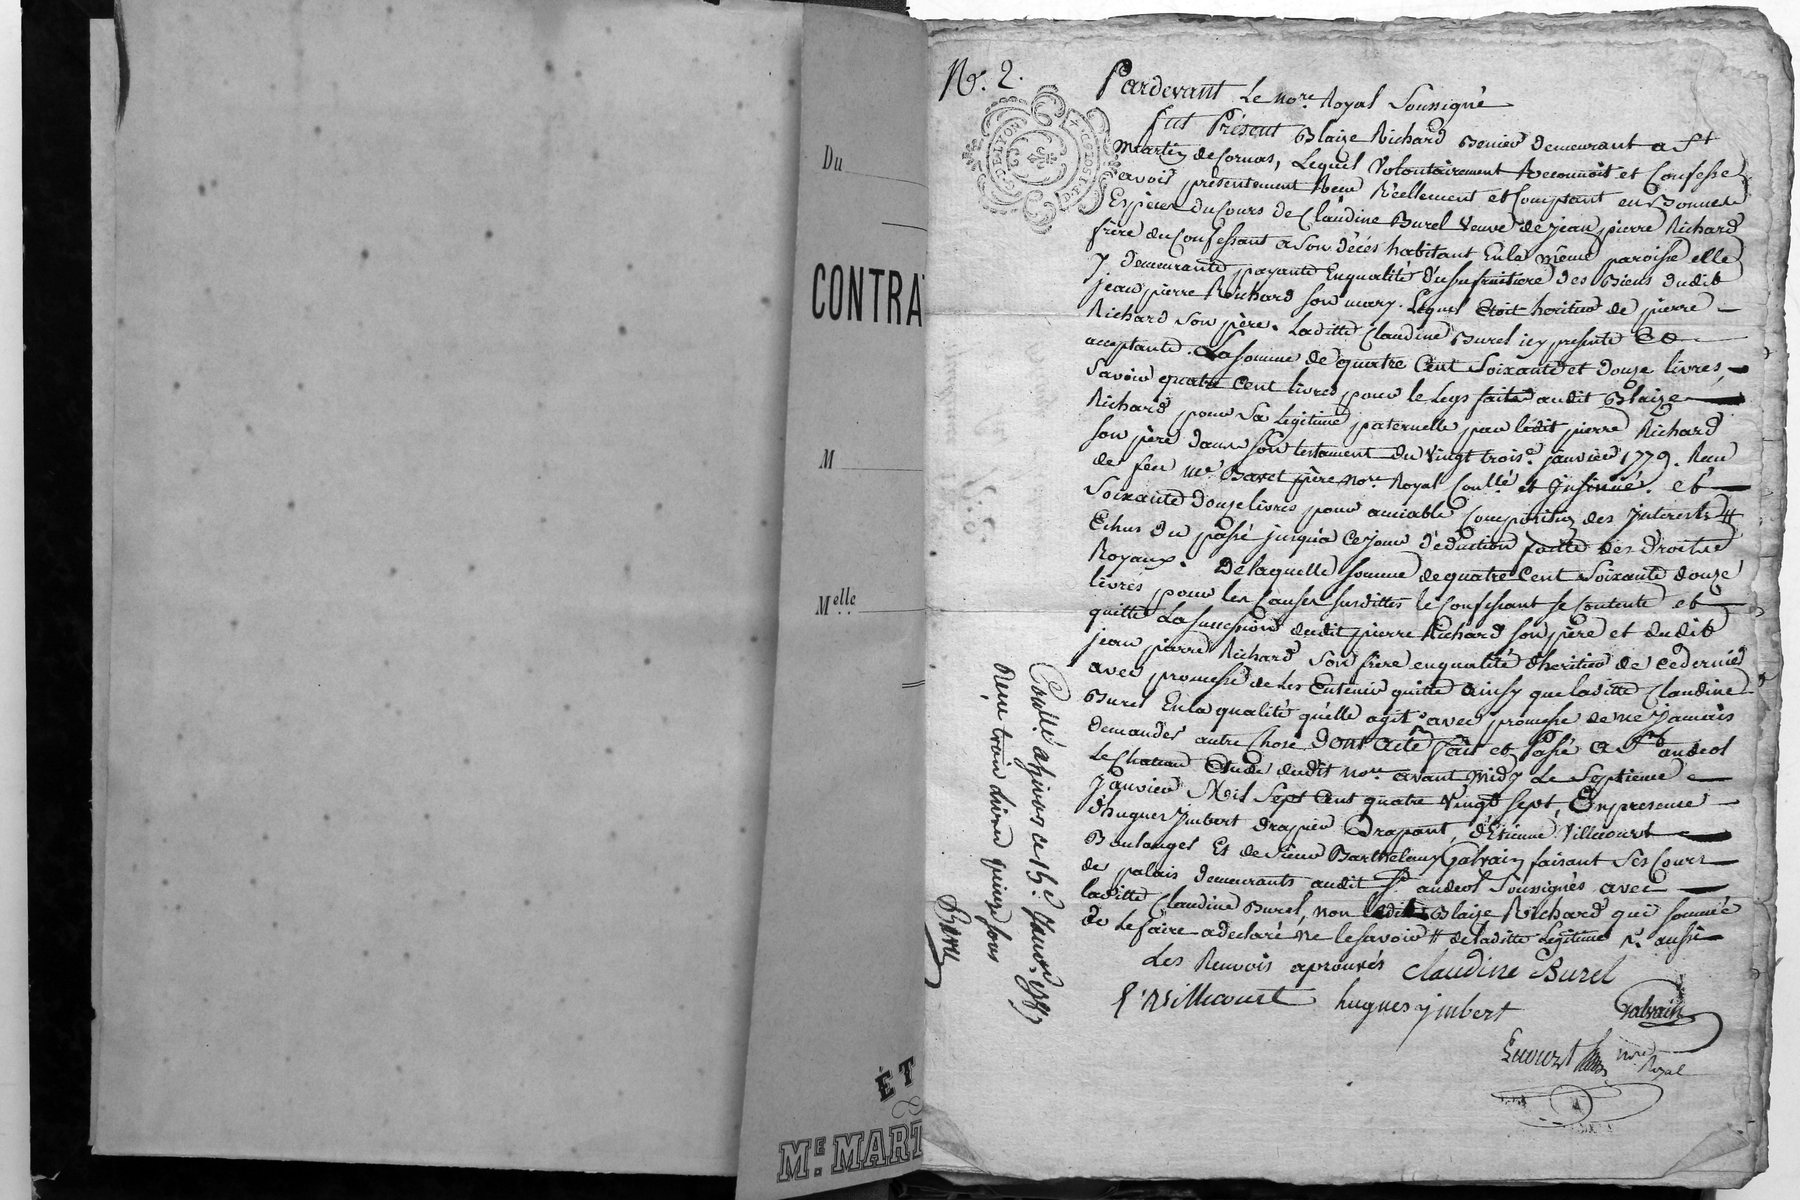 Du
CONTRA
M
Melle
ET
Me. MART
No. 2.
G. DE LYON
Pardevant Le nore Royal Soussigné
fut Présent Blaize Richard Benier demeurant a St
Martin de Cornas, Lequel Volontairement Reconnoit et Confesse
avoir présentement Reçu Réellement et Comptant en Bonnes
Espèces du Cours de Claudine Burel Veuve de jean pierre Richard
frère du Confessant a son décés habitant En la même paroisse elle
y demeurante payante En qualité d'usufruitiere des Biens dudit
jean pierre Richard son mary. Lequel Etoit heritier de pierre
Richard son père. Laditte Claudine Burel icy presente Et
acceptante. La somme de quatre Cent Soixante et douze livres,
Savoir quatre Cent livres pour le Legs faite audit Blaize
Richard pour Sa Legitime paternelle par ledit pierre Richard
son père dans son testament du Vingt trois.e janvier 1779. Reçu
de feu me Baret père nore Royal Conllé et Insinué. et
Soixante douze livres pour amiable Composition des Interests #
Echus du passé jusqu'a Ce jour déduction faitte des Droits
Royaux. De laquelle somme de quatre Cent Soixante douze
livres pour les Causes susdittes le Confessant se Contente et
quitte La succession dudit pierre Richard son père et dudit
jean pierre Richard son frère en qualité d'heritier de ce dernier
avec promesse de les Entenir quitte ainsy que laditte Claudine
Burel En la qualité qu'elle agit avec promesse de ne jamais
demander autre Chose. Dont acte fait et Passé a St andeol
Le Chateau Etude dudit nore avant midy Le Septieme
Janvier Mil Sept Cent quatre Vingt sept, En presence
d'hugues Imbert drapier Drapant, d'Etienne Villecourt
Boulanger Et de sieur Barthelemy Galvain faisant Ses Cours
de palais demeurants audit St andeol Soussignés avec
laditte Claudine Burel, non ledit Blaize Richard qui sommé
de Le faire a declaré ne le savoir # de laditte Legitime aussi
Les Renvois aprouvés Claudine Burel
E. Villicourt hugues ymbert Galvain
nore Royal
Conllé a givors ce 15e Janvr 1787
Reçu trois livres quinze sous
Baret